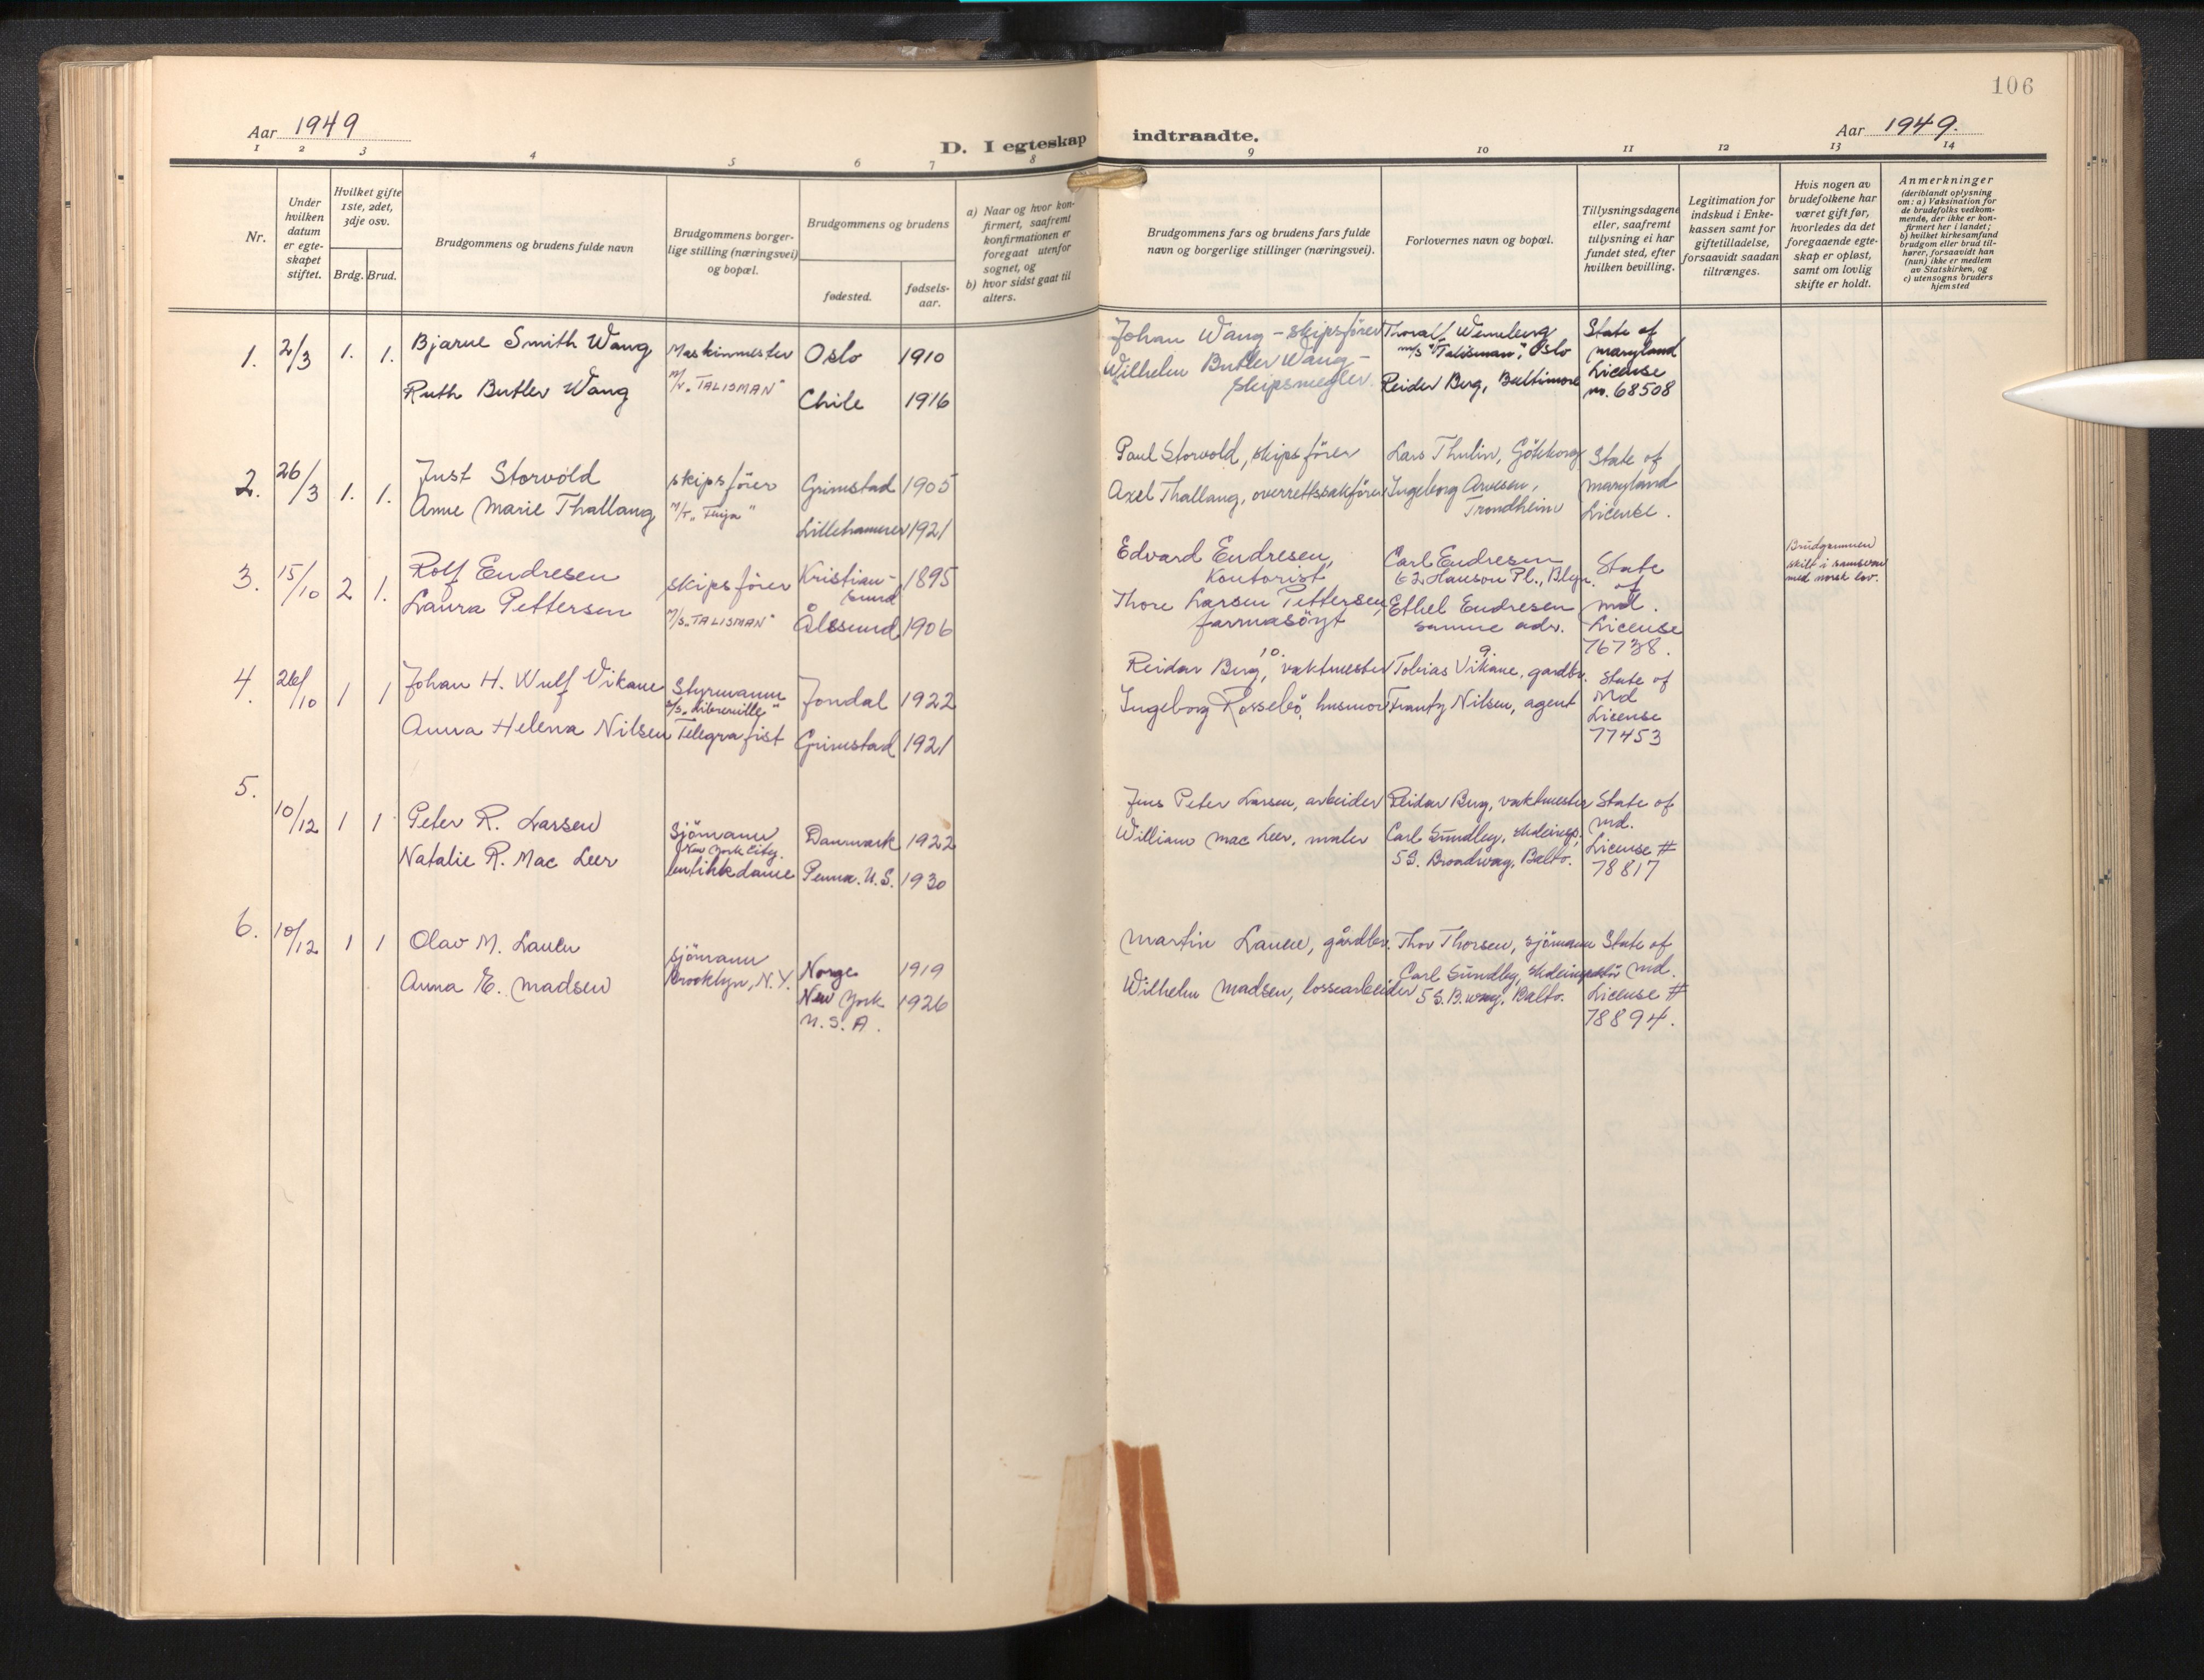 106
Aar 1949
D. I egteskap indtraadte.
Aar 1949.
1 2 3 4 5 6 7 8 9 10 11 12 13 14
Nr.
Under hvilken datum er egte-skapet stiftet.
Hvilket gifte 1ste, 2det, 3dje osv.
Brdg. Brud.
Brudgommens og brudens fulde navn
Brudgommens borger-lige stilling (næringsvei) og bopæl.
Brudgommens og brudens
fødested.
fødsels-aar.
a) Naar og hvor kon-firmert, saafremt konfirmationen er foregaat utenfor sognet, og
b) hvor sidst gaat til alters.
Brudgommens fars og brudens fars fulde navn og borgerlige stillinger (næringsvei).
Forlovernes navn og bopæl.
Tillysningsdagene eller, saafremt tillysning ei har fundet sted, efter hvilken bevilling.
Legitimation for indskud i Enke-kassen samt for giftetilladelse, forsaavidt saadan tiltrænges.
Hvis nogen av brudefolkene har været gift før, hvorledes da det foregaaende egte-skap er opløst, samt om lovlig skifte er holdt.
Anmerkninger
(deriblandt oplysning om: a) Vaksination for de brudefolks vedkom-mende, der ikke er kon-firmert her i landet; b) hvilket kirkesamfund brudgom eller brud til-hører, forsaavidt han (hun) ikke er medlem av Statskirken, og c) utensogns bruders hjemsted
1. 2/3 1. 1. Bjarne Smith Wang
Ruth Butler Wang
Maskinmester
M/S "TALISMAN"
Oslo 1910
Chile 1916
Johan Wang - skipsförer
Wilhelm Butler Wang -
skipsmegler.
Thoralf Wenneberg
m/s "Talisman", Oslo
Reider Berg, Baltimore
State of
Maryland
License
no. 68508
2. 26/3 1. 1. Just Storvold
Anne Marie Thallaug
skipsförer
M/T "Fenja"
Grimstad 1905
Lillehammer 1921
Paul Storvold, skipsförer
Axel Thallaug, overrettssakförer
Lars Thulin, Göteborg
Ingeborg Arnesen,
Trondheim
State of
Maryland
License.
3. 15/10 2 1. Rolf Endresen
Laura Pettersen
skipsförer
M/S "TALISMAN"
Kristian-
sund 1895
Ålesund 1906
Edvard Endresen,
Kontorist
Thore Larsen Pettersen,
farmasöyt
Carl Endresen
62 Hanson Pl., Blyn.
Ethel Endresen
samme adr.
State
of
Md.
License
76738.
Brudgommen
skilt i samsvar
med norsk lov.
4. 26/10 1 1 Johan H. Wulf Vikane
Anna Helena Nilsen
Styrmann
Telegrafist
Jondal 1922
Grimstad 1921
10.
Reidar Berg, vaktmester
Ingeborg Rossebö, husmor
9.
Tobias Vikane, gardbr.
Frantz Nilsen, agent
State of
Md
License
77453
5.
10/12 1 1 Peter R. Larsen
Natalie R. Mac Leer
Sjömann
New York City.
butikkdame
Danmark 1922
Penna. U.S. 1930
Jens Peter Larsen, arbeider
William Mac Leer, maler
Reidar Berg, vaktmester
Carl Sundby,
5 S. Broadway, Balto.
State of
Md.
License #
78817
6. 10/12 1 1 Olav M. Lauen
Anna E. Madsen
sjömann
Brooklyn, N.Y.
Norge 1919
New York 1926
U.S.A.
Martin Lauen, gårdbr.
Wilhelm Madsen, lossearbeider
Thor Thorsen, sjömann
Carl Sundby,
5 S. B.way, Balto.
State of
Md.
License #
78894.